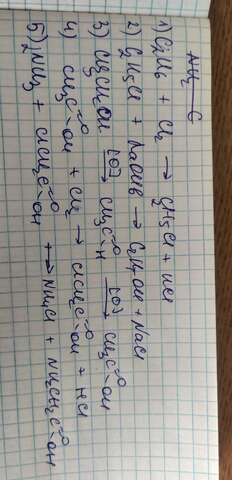 NH2—C
1) C2H6 + Cl2 → C2H5Cl + HCl
2) C2H5Cl + NaOHв → C2H5OH + NaCl
3) CH3CH2OH [O]→ CH3C=O-H [O]→ CH3C=O-OH
4) CH3C=O-OH + Cl2 → ClCH2C=O-OH + HCl
5) 2NH3 + ClCH2C=O-OH → NH4Cl + NH2CH2C=O-OH